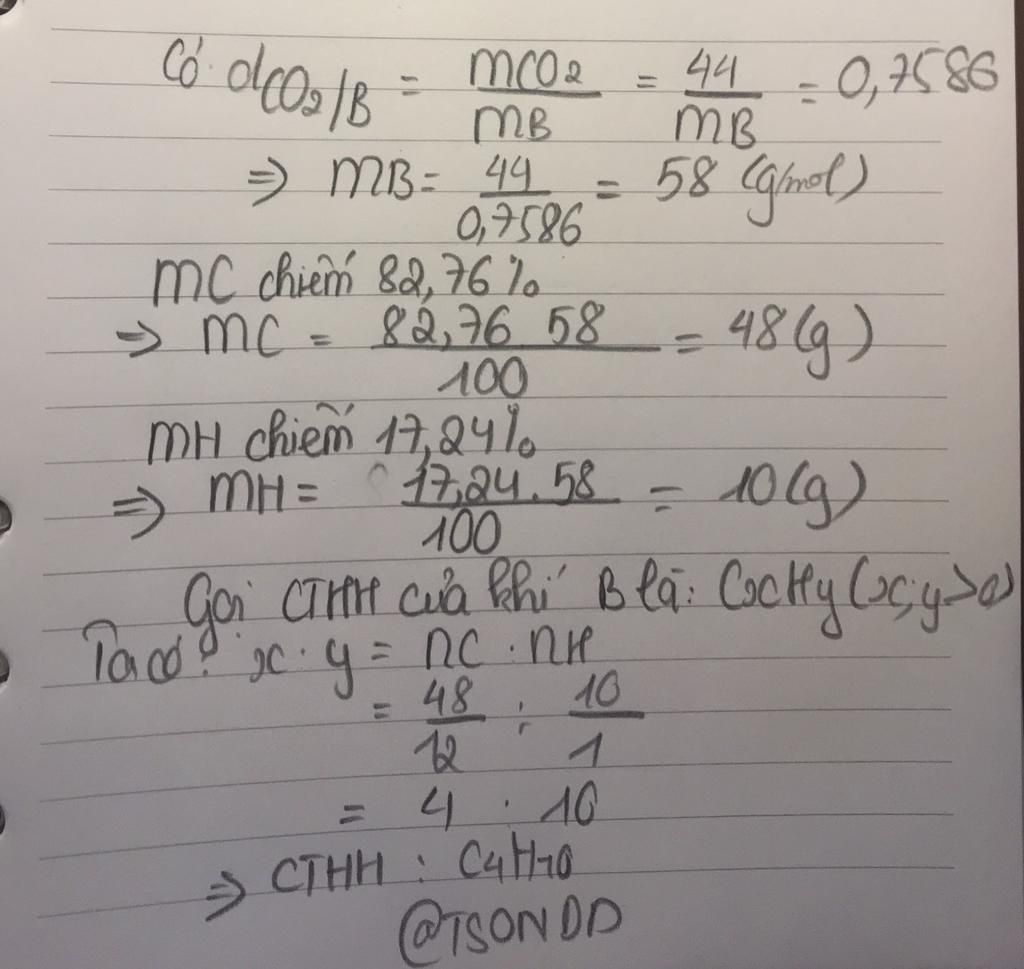 Có dCO2/B = mCO2/MB = 44/MB = 0,7586
=> MB = 44/0,7586 = 58 (g/mol)
MC chiếm 82,76%
=> MC = 82,76 58/100 = 48 (g)
MH chiếm 17,24%
=> MH = 17,24.58/100 = 10 (g)
Gọi CTHH của khí B là: CxHy (x;y>0)
Ta có: x : y = nC : nH
= 48/12 : 10/1
= 4 : 10
=> CTHH : C4H10
@TSONDD